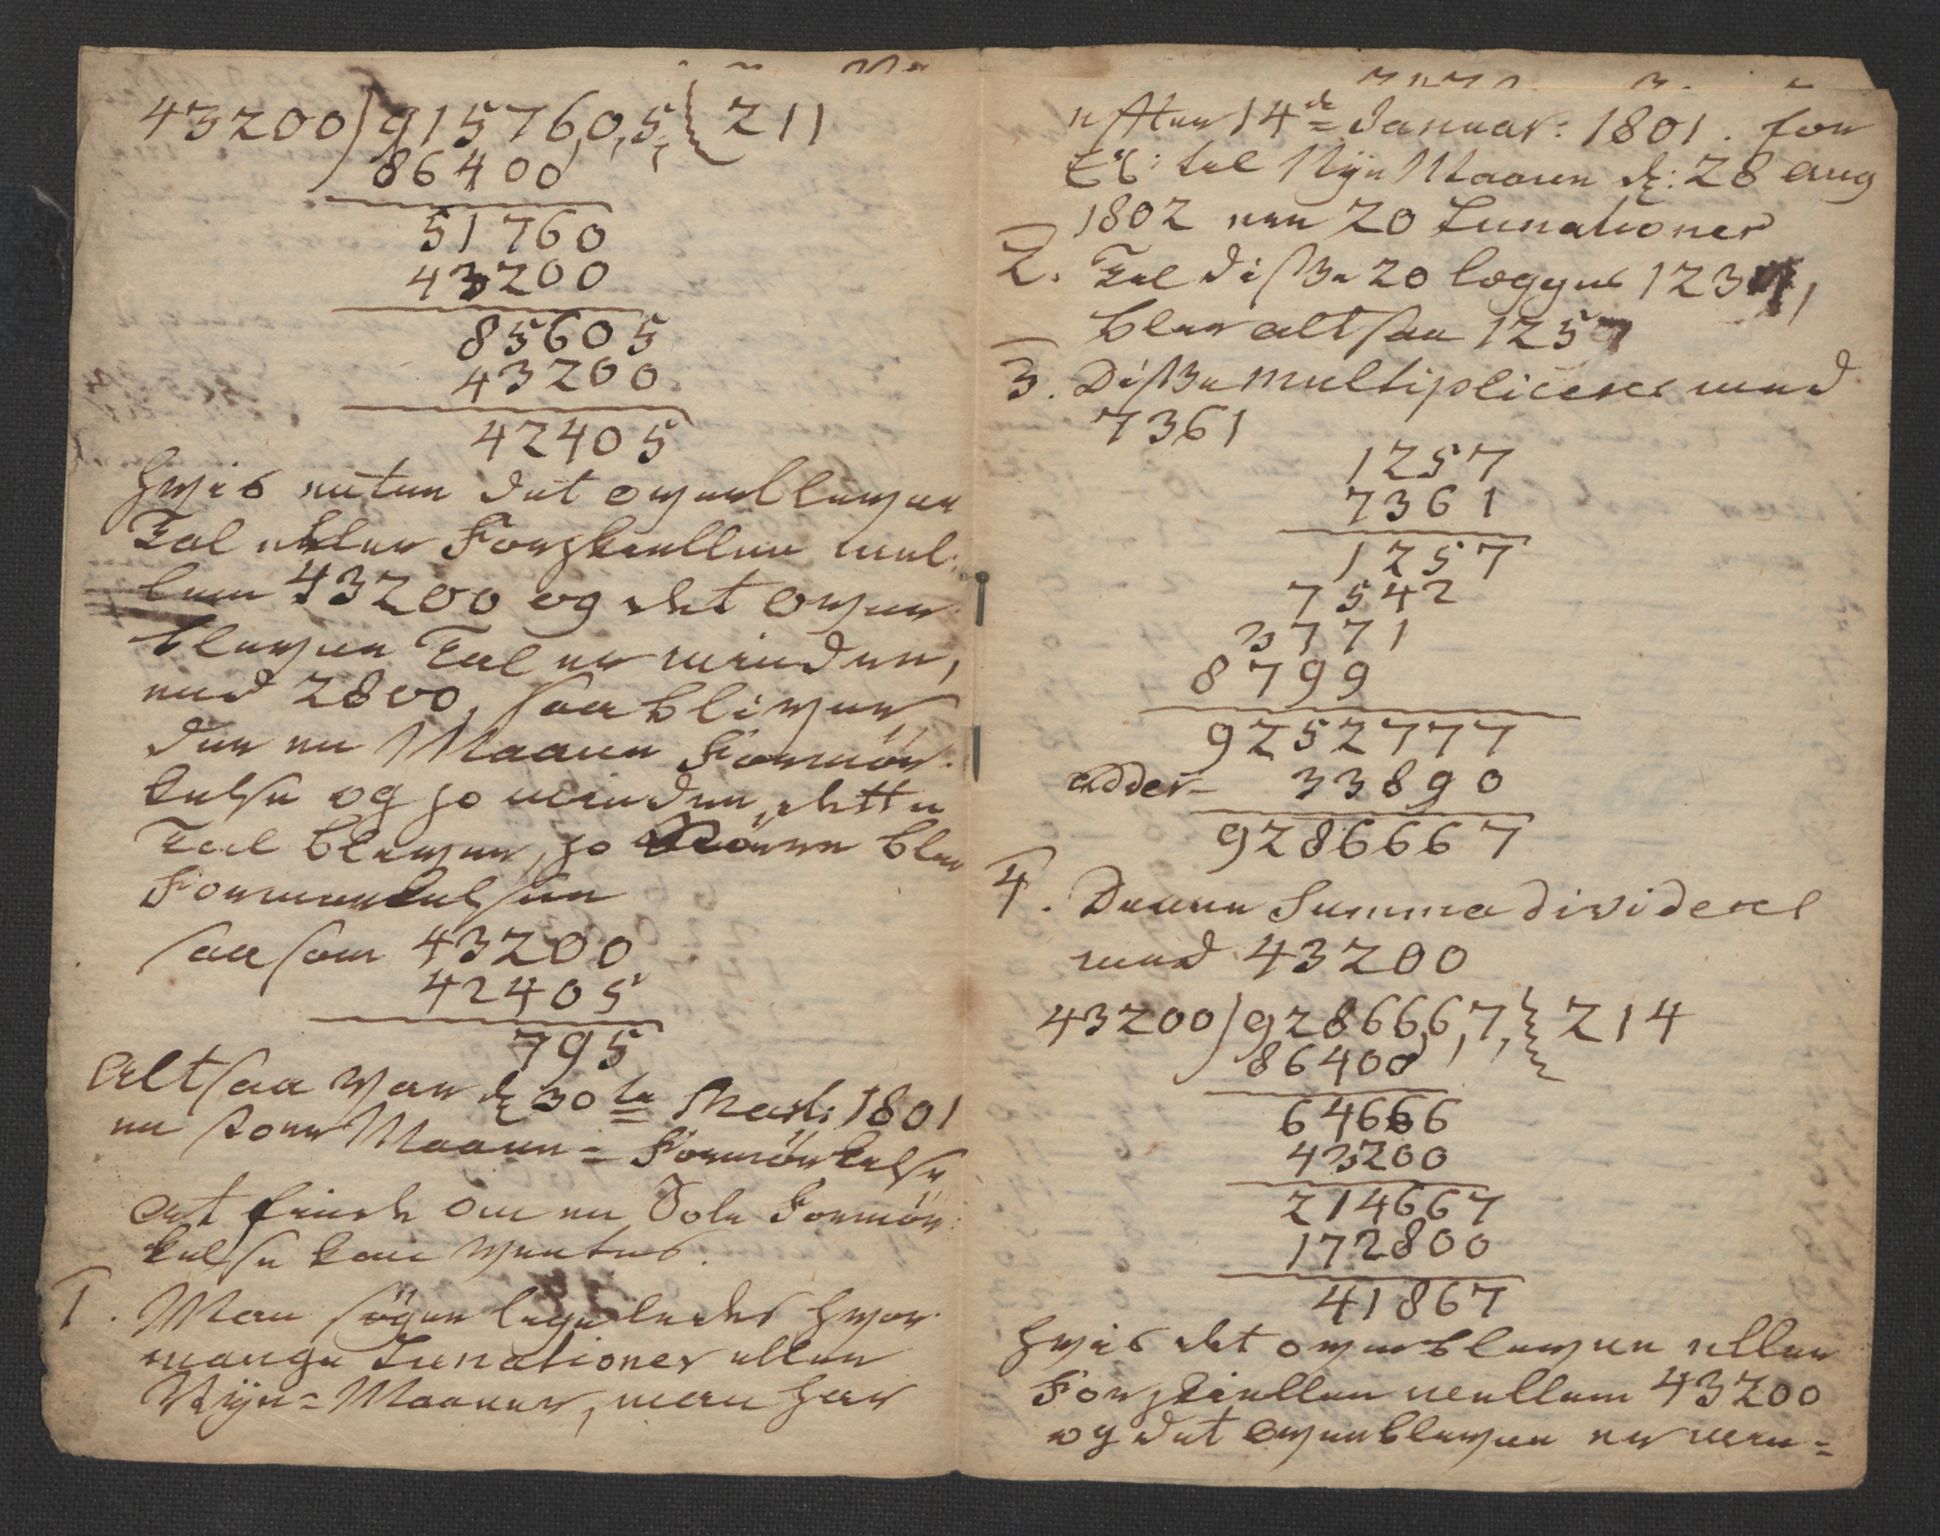 43200) 915760,5, { 211
86400
51760
43200
85605
43200
42405
hvis enten det overblevne
Tal eller Forskiellen mel¬
lem 43200 og det over
blevne Tal er minder,
end 2800, saa bliver
der en Maane Formør¬
kelse og jo minder dette
Tal bliver, jo Större blir
Formørkelsen
saasom 43200
42405
795
altsaa var d. 30te Marti 1801
en stor Maane=Formørkelse
at finde om en Sole Formør¬
kelse kan ventes.
1. Man søger ligeledes hvor
mange Lunationer eller
Nÿe=Maaner, man har
efter 14de Januar: 1801. for
Ex: til Nÿe Maanen d: 28 aug
1802 er 20 Lunationer
2. Til disse 20 lægges 1237
blir altsaa 1257
3. Disse multipliceres med
7361
1257
7361
1257
7542
3771
8799
9252777
adder- 33890
9286667
4. Denne Summa divideres
med 43200
43200) 928666,7, { 214
86400
64666
43200
214667
172800
41867
hvis det overblevne eller
Forskiellen mellem 43200
og det overblevne er min=